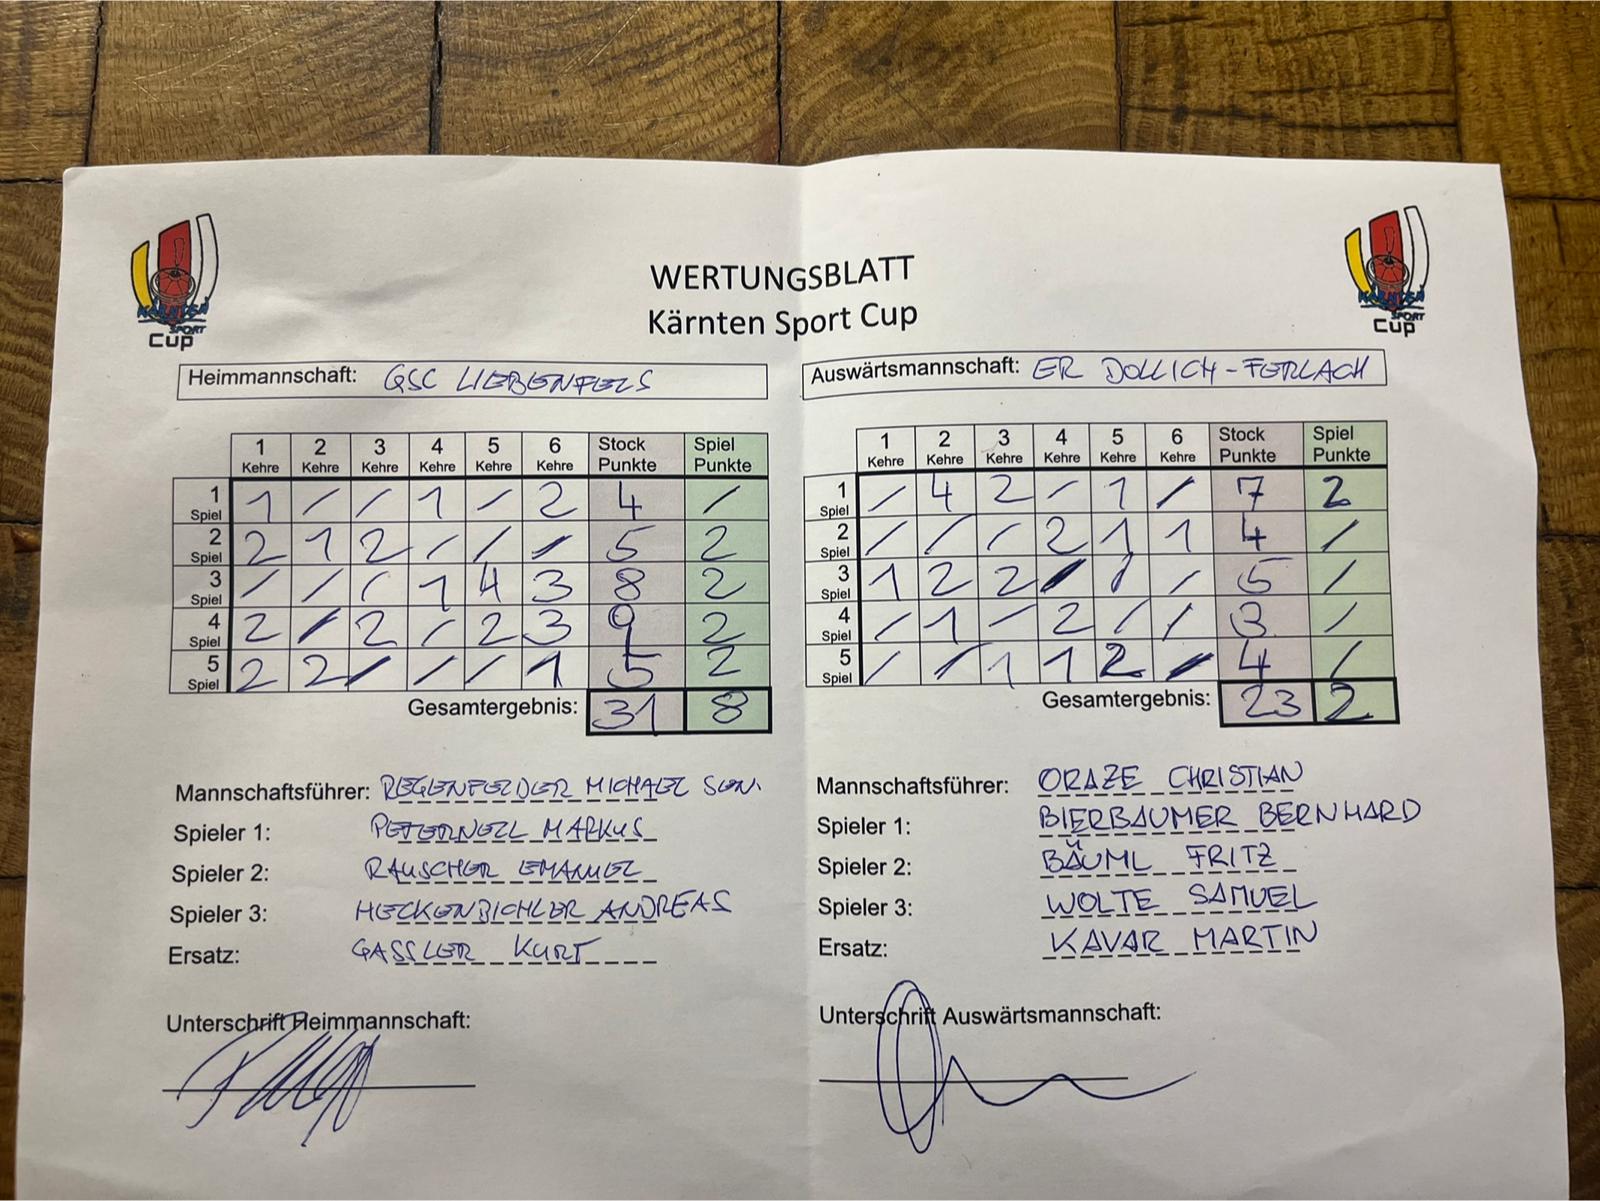 KÄRNTEN
SPORT
Cup
KÄRNTEN
SPORT
Cup
WERTUNGSBLATT
Kärnten Sport Cup
Heimmannschaft: GSC LIEBENFELS
Auswärtsmannschaft: ER DOLLICH-FERLACH
1 2 3 4 5 6 Stock Spiel
Kehre Kehre Kehre Kehre Kehre Kehre Punkte Punkte
1 Spiel 1 / / 1 / 2 4 /
2 Spiel 2 1 2 / / / 5 2
3 Spiel / / / 1 4 3 8 2
4 Spiel 2 / 2 / 2 3 9 2
5 Spiel 2 2 / / / 1 5 2
Gesamtergebnis: 31 8
1 2 3 4 5 6 Stock Spiel
Kehre Kehre Kehre Kehre Kehre Kehre Punkte Punkte
1 Spiel / 4 2 / 1 / 7 2
2 Spiel / / / 2 1 1 4 /
3 Spiel 1 2 2 / / / 5 /
4 Spiel / 1 / 2 / / 3 /
5 Spiel / / 1 1 2 / 4 /
Gesamtergebnis: 23 2
Mannschaftsführer: REGENFELDER MICHAEL SEN.
Spieler 1: PETERNELL MARKUS
Spieler 2: RAUSCHER EMANUEL
Spieler 3: HECKENBICHLER ANDREAS
Ersatz: GASSLER KURT
Unterschrift Heimmannschaft:
Mannschaftsführer: ORAZE CHRISTIAN
Spieler 1: BIERBAUMER BERNHARD
Spieler 2: BÄUML FRITZ
Spieler 3: WOLTE SAMUEL
Ersatz: KAVAR MARTIN
Unterschrift Auswärtsmannschaft: